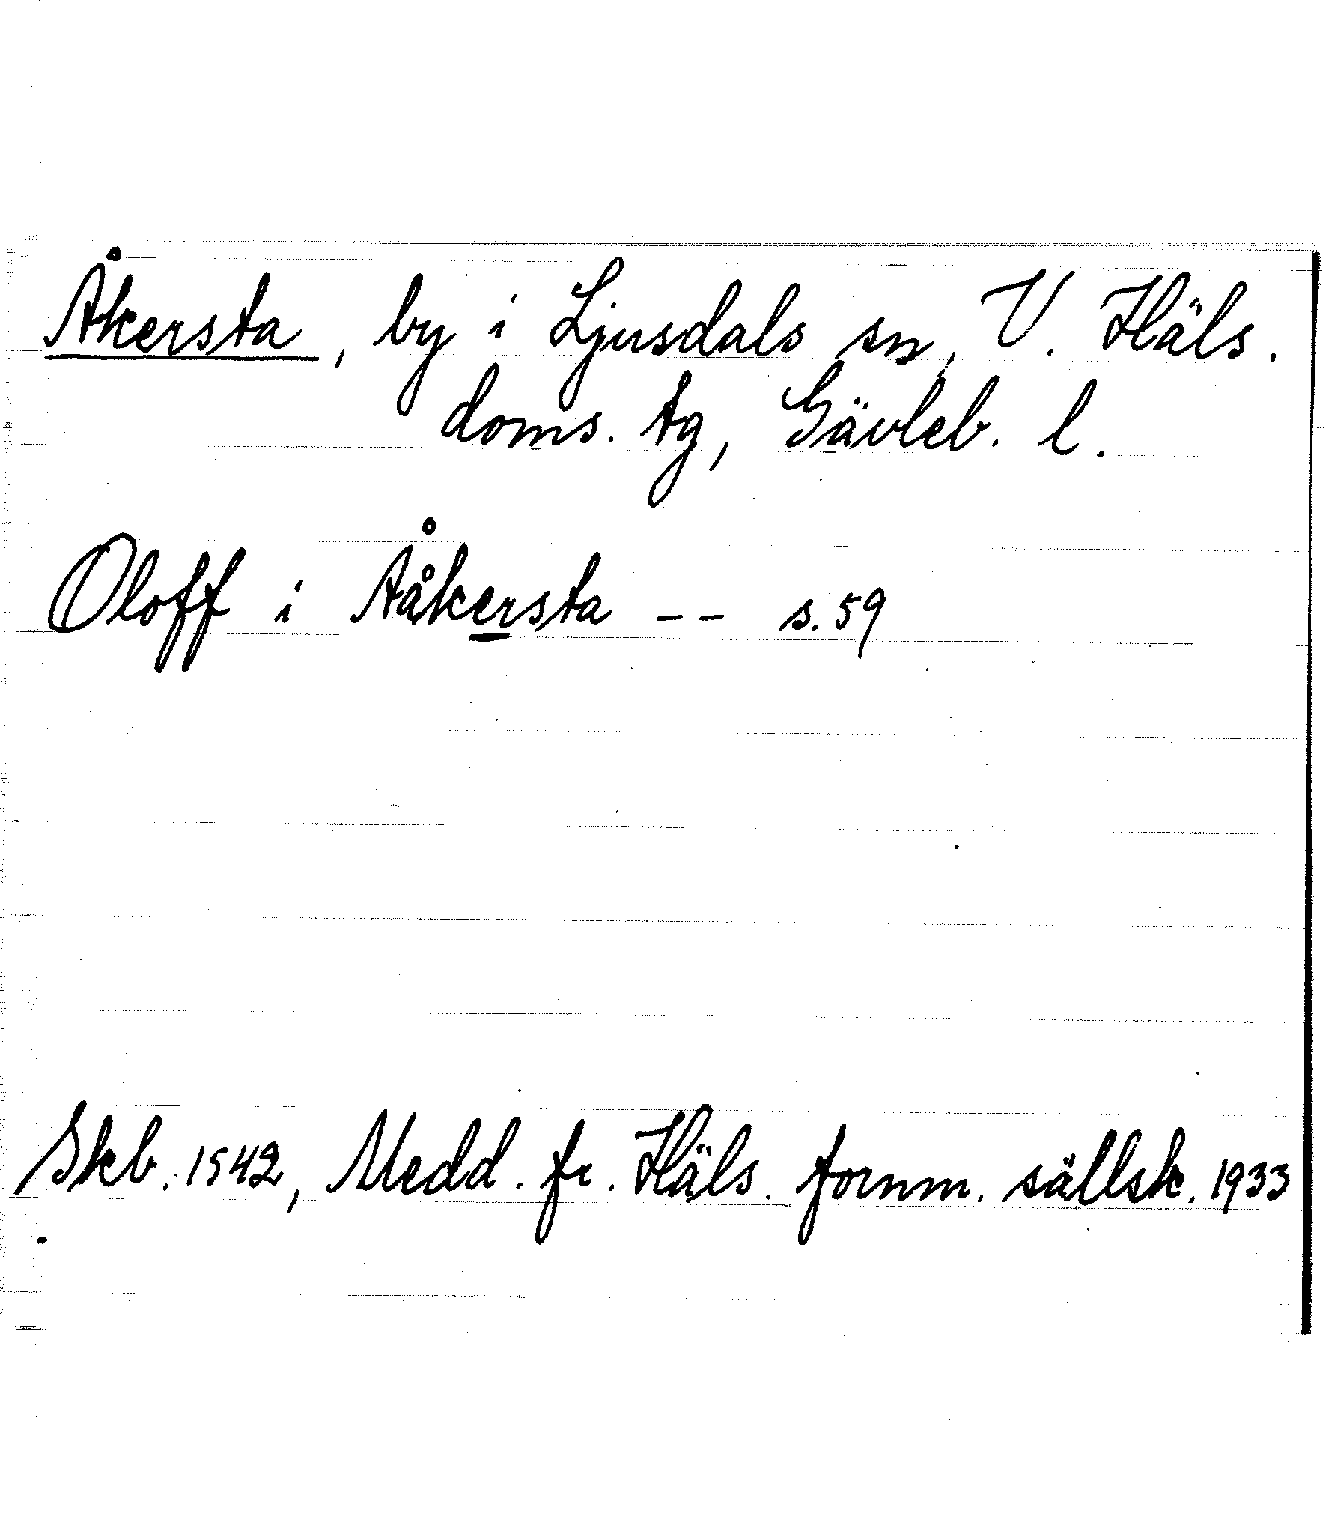 Åkersta, by i Ljusdals sn, V. Häls.
doms. tg, Gävleb. l.
Oloff i Ååkersta -- s. 59
Skb. 1542, Medd. fr. Häls. fornm. sällsk. 1933